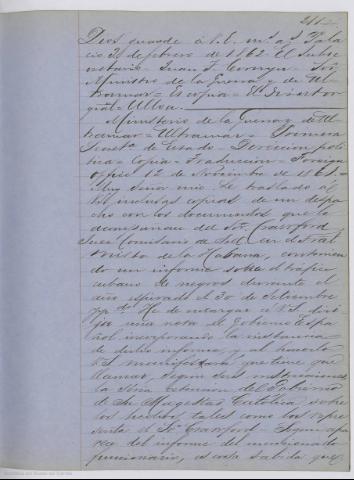 Dios guarde á V.E. ms. as. Pala
cio 28 de febrero de 1862 El Subse
cretario = Juan T. Comyn = Sor.
Ministro de la Guerra y de Ul
tramar = Es copia = El Director
gral = Ulloa =
Ministerio de la Guerra y de Ul
tramar = Ultramar = Primera
Secreta. de Estado = Direccion poli
tica = Copia = Traduccion = Foreign
office 12 de Noviembre de 1861 =
Muy Señor mio: Le traslado á
las inclusas copias de un despa
cho con los documentos que le
acompañan del Sor. Crawford
Juez Comisario de S.M. en el Tri
de la Habana, contenien
do un informe sobre el tráfico
cubano de negros durante el
año espirado el 30 de Setiembre
He de encargar á V.S. diri
ja una nota al Gobierno Espa
ñol incorporando la sustancia
de dicho informe, y al hacerlo
V.S.
llamar, segun sus instrucciones
la séria atencion del Gobierno
de Su Magestad Católica sobre
los hechos, tales como los repre
senta el Sr. Crawford. Segun apa
rece del informe del mencionado
funcionario, es cosa sabida que